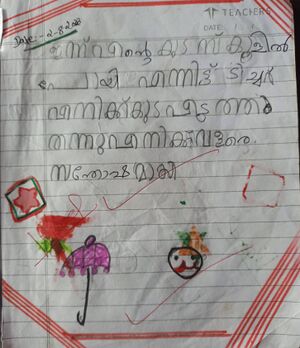 TEACHERS
DATE
Date:-2-8-2023
ഇന്ന് എന്റെ കുട സ്കൂളിൽ
പോയി എന്നിട്ട് ടീച്ചർ
എനിക്ക് കുട എടുത്തു
തന്നു എനിക്ക് വളരെ
സന്തോഷമായി